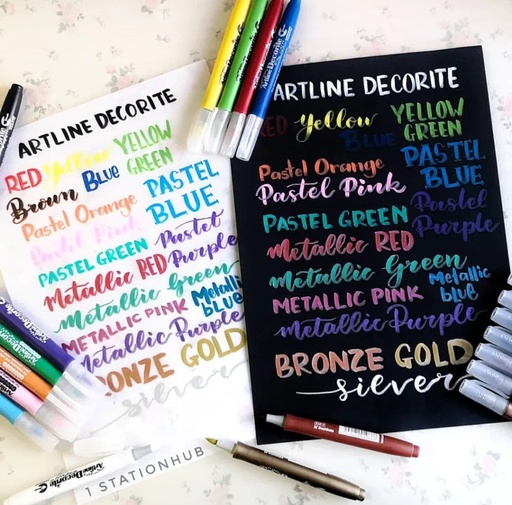 ARTLINE DECORITE
RED Yellow YELLOW GREEN
Brown Blue
PASTEL BLUE
Pastel Orange
Pastel Pink
Pastel Purple
PASTEL GREEN
Metallic RED
Metallic Green
METALLIC PINK
Metallic blue
Metallic Purple
BRONZE GOLD
silver
ARTLINE DECORITE
RED Yellow YELLOW GREEN
Blue
PASTEL BLUE
Pastel Orange
Pastel Pink
Pastel Purple
PASTEL GREEN
Metallic RED
Metallic Green
METALLIC PINK
Metallic blue
Metallic Purple
BRONZE GOLD
silver
Artline Decorite
1 STATIONHUB